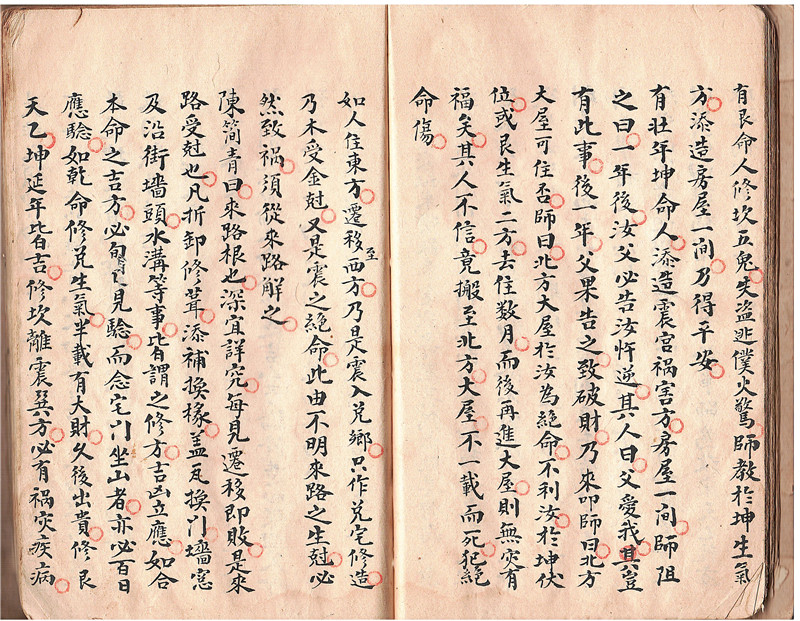 有艮命人修坎五鬼失盜逃僕火驚師教於坤生氣
方添造房屋一间乃得平安
有壮年坤命人添造震宫祸害方房屋一间師阻
之曰一年後汝父必告汝忤逆其人曰父愛我其豈
有此事後一年父果告之致破財乃來叩師曰北方
大屋可住否師曰北方大屋於汝為絕命不利汝於坤伏
位或艮生氣二方去住数月而後再進大屋則無灾有
福矣其人不信竟搬至北方大屋不一載而死犯絕
命傷
如人住東方遷移至西方乃是震入兑鄉只作兑宅修造
乃木受金尅又是震之絕命此由不明來路之生尅必
然致祸須從來路解之
陳简青曰來路根也深宜詳究每見遷移即敗是來
路受尅也凡折卸修葺添補換椽盖瓦換门墻窓
及沿街墻頭水溝等事皆謂之修方吉凶立應如合
本命之吉方必旬日見驗而念宅门坐山者亦必百日
應驗如乾命修兑生氣半載有大財久後出貴修艮
天乙坤延年皆吉修坎離震巽方必有祸灾疾病